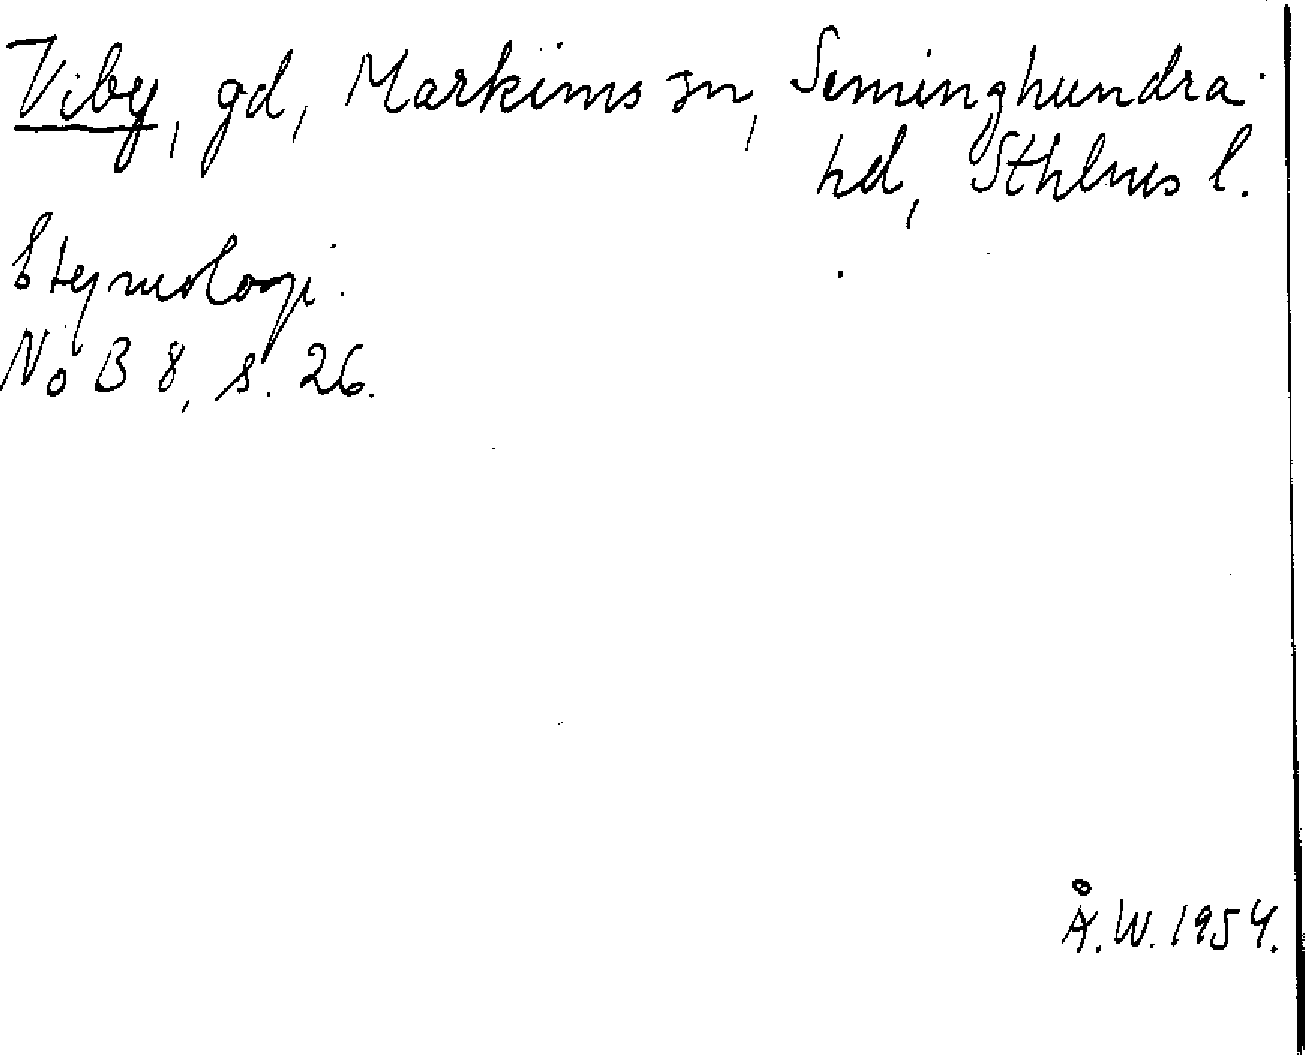 Viby, gd, Markims sn, Seminghundra
hd, Sthlms l.
Etymologi.
NoB 8, s. 26.
Å.W. 1954.